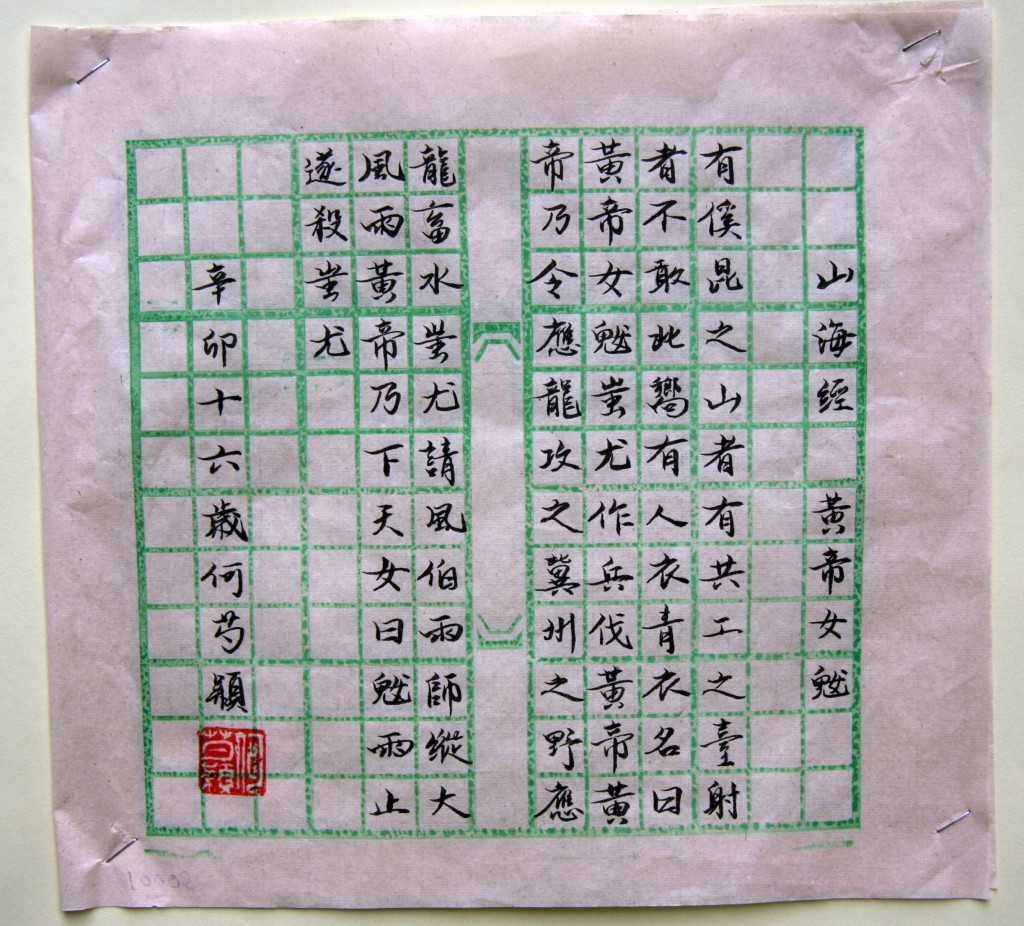 山海經 黃帝女魃
有傒昆之山者有共工之臺射
者不敢北嚮有人衣青衣名曰
黃帝女魃蚩尤作兵伐黃帝黃
帝乃令應龍攻之冀州之野應
龍畜水蚩尤請風伯雨師縱大
風雨黃帝乃下天女曰魃雨止
遂殺蚩尤
辛卯十六歲何芍穎